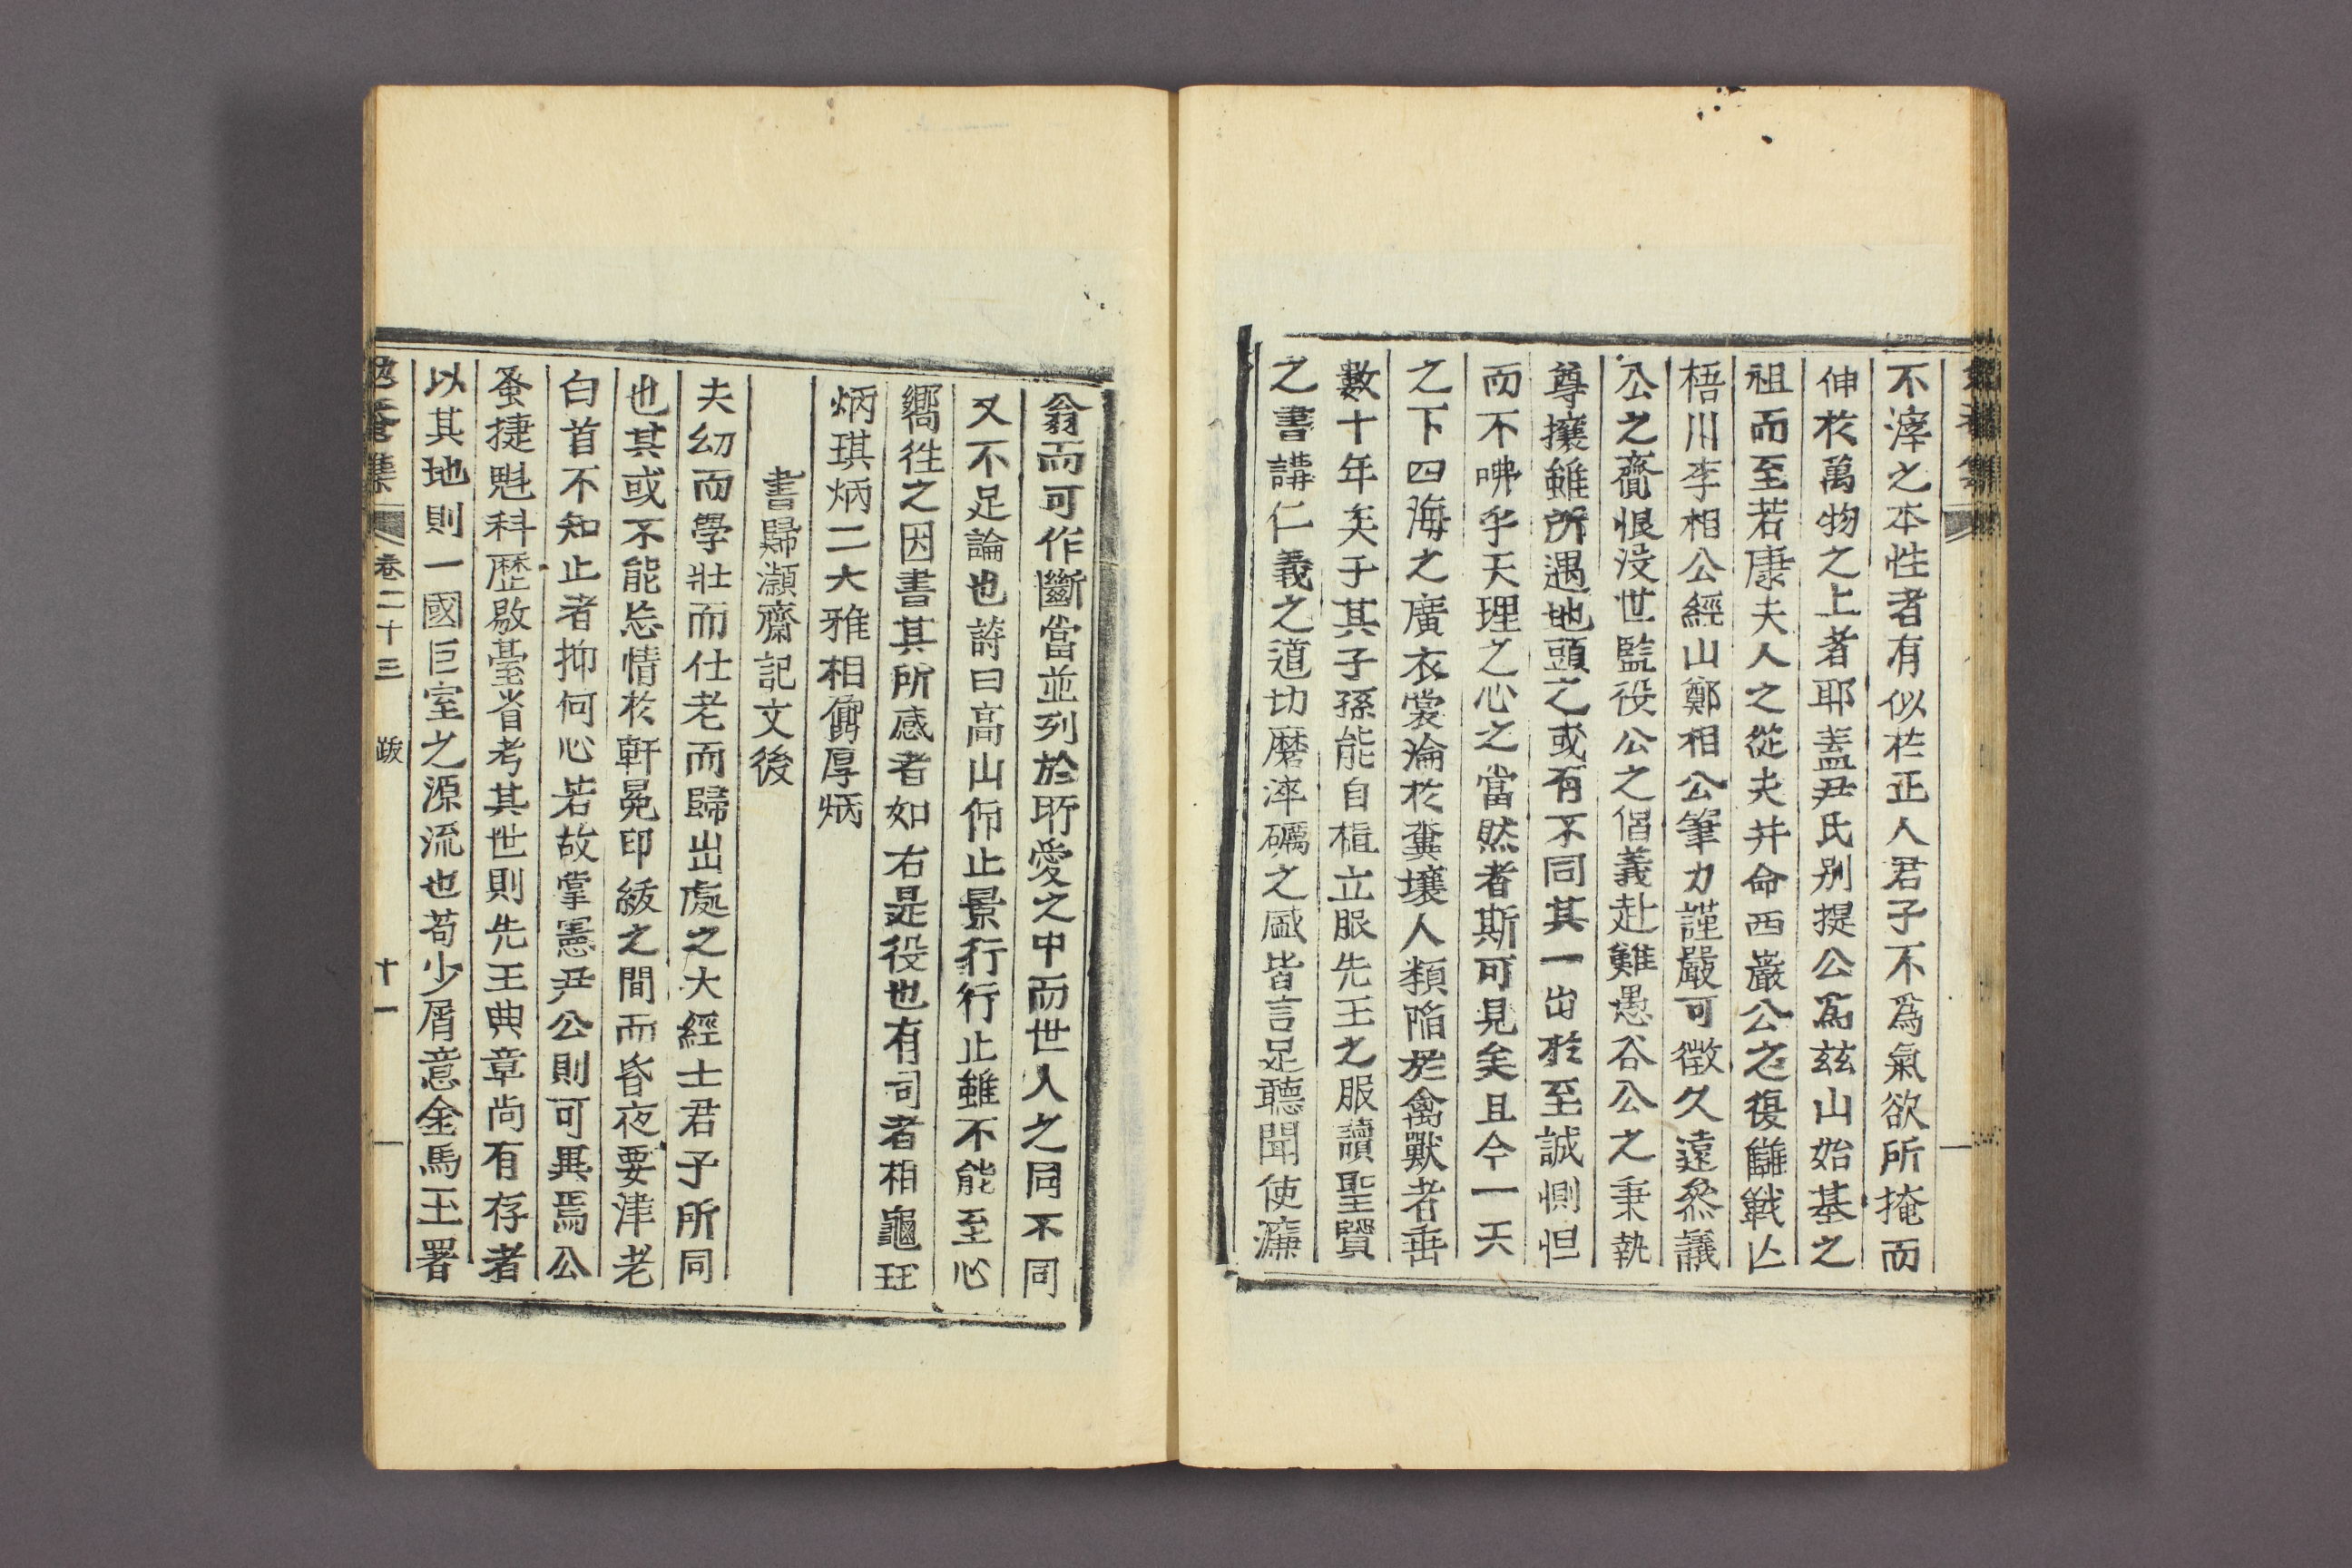 不滓之本性者有似於正人君子不爲氣欲所掩而
伸於萬物之上者耶盖尹氏别提公爲玆山始基之
祖而至若康夫人之從夫并命西巖公之復讎戰亾
梧川李相公經山鄭相公筆力謹嚴可徵久遠叅議
公之齎恨沒世監役公之倡義赴難愚谷公之秉執
尊攘雖所遇地頭之或有不同其一出於至誠惻怛
而不咈乎天理之心之當然者斯可見矣且今一天
之下四海之廣衣裳淪於糞壤人類陷於禽獸者垂
數十年矣于其子孫能自植立服先王之服讀聖賢
之書講仁義之道切磨淬礪之盛皆言足聽聞使濂
翁而可作斷當並列於所愛之中而世人之同不同
又不足論也詩曰高山仰止景行行止雖不能至心
嚮徃之因書其所感者如右是役也有司者相龜珏
炳琪炳二大雅相龠厚炳
書歸灝齋記文後
夫幼而學壯而仕老而歸出處之大經士君子所同
也其或不能忘情於軒冕印綬之間而昏夜要津老
白首不知止者抑何心若故掌憲尹公則可異焉公
蚤捷魁科歷敭臺省考其世則先王典章尚有存者
以其地則一國巨室之源流也苟少屑意金馬玉署
集 卷二十三 跋 十一